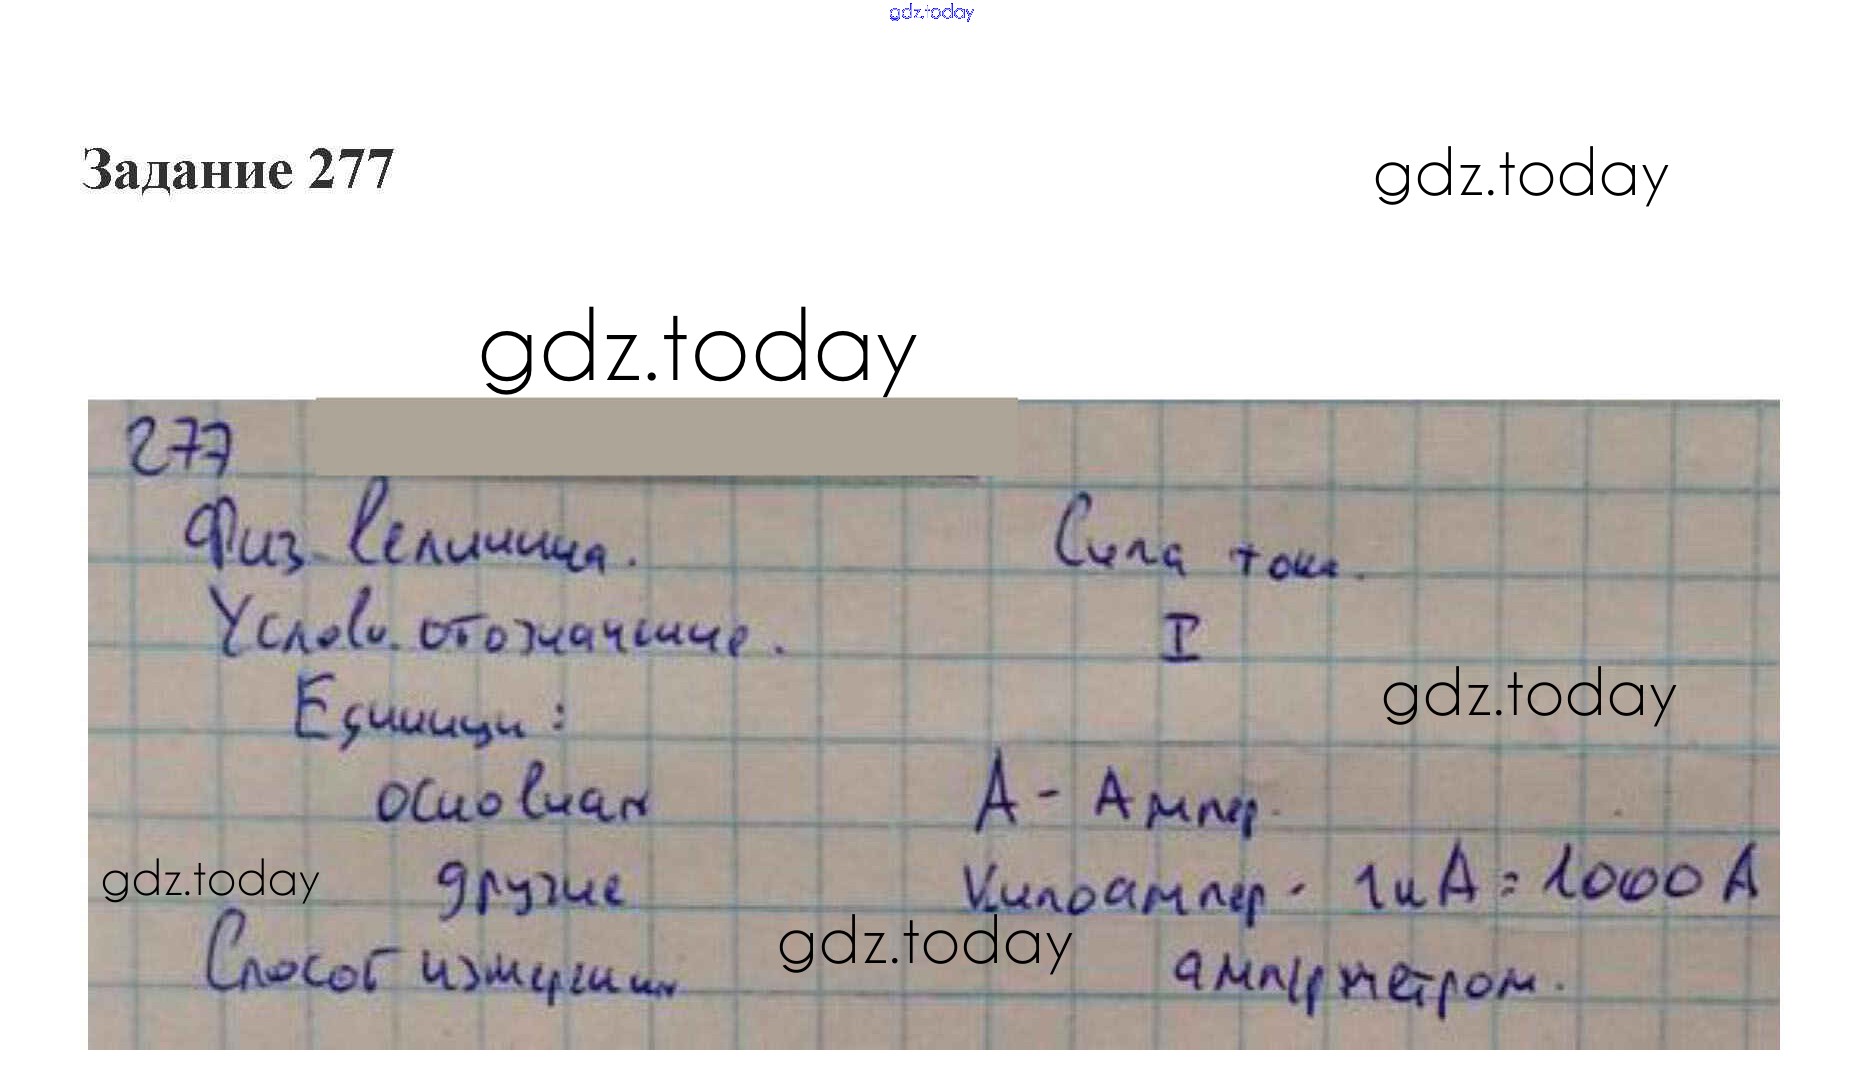 gdz.today
Задание 277
gdz.today
gdz.today
277
Физ. величина. Сила тока.
Услов. обозначение. I
gdz.today
Единицы:
основная А - Ампер.
gdz.today
другие Килоампер - 1кА = 1000 А
gdz.today
Способ измерения амперметром.